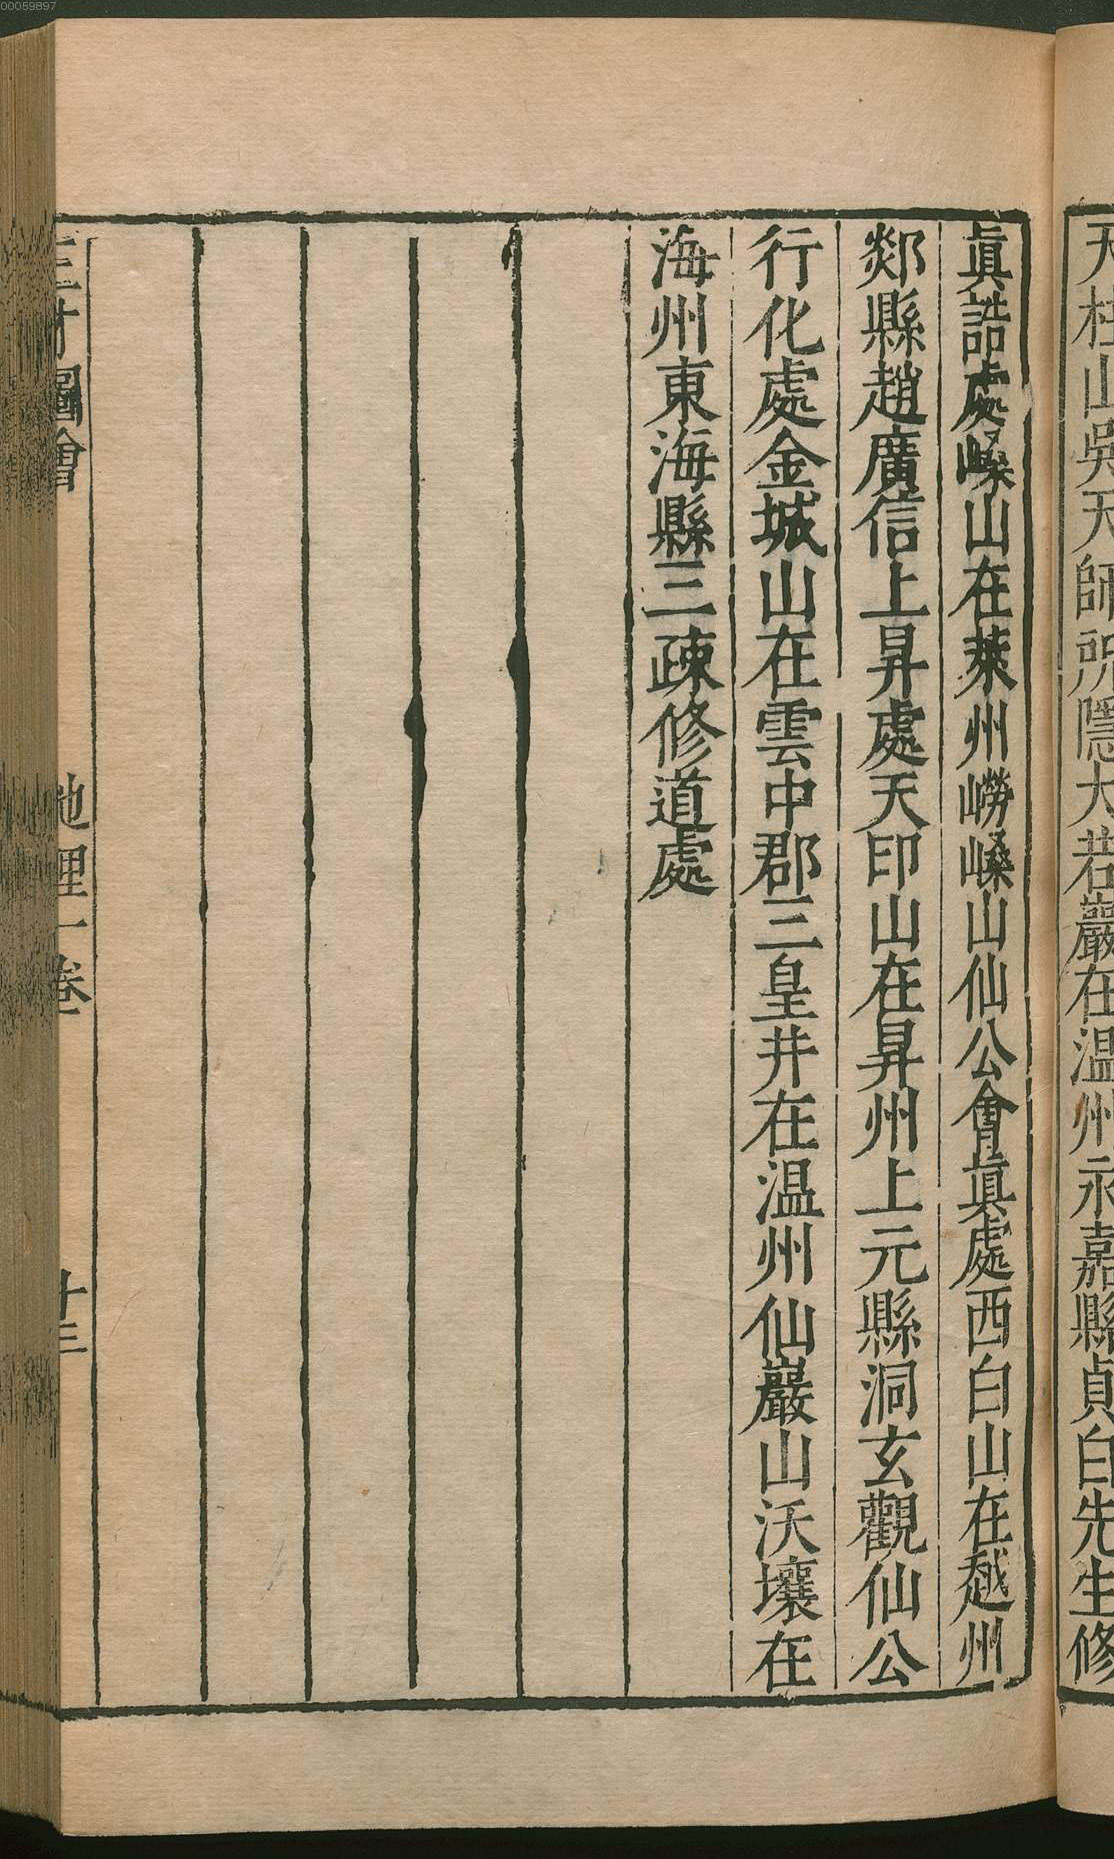 00059897
天柱山吳天師所隱大若巖在温州永嘉縣貞白先生修
眞誥處嵊山在萊州嶗嵊山仙公會眞處西白山在越州
剡縣趙廣信上昇處天印山在昇州上元縣洞玄觀仙公
行化處金城山在雲中郡三皇井在温州仙巖山沃壤在
海州東海縣三疎修道處
三才圖會
地理一卷
十三